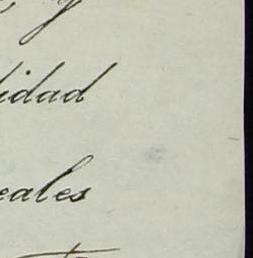 y
idad
eales